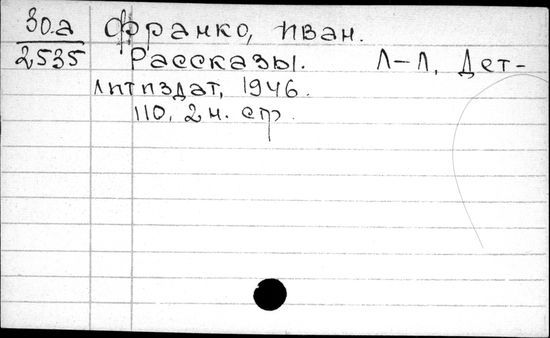 30.а Франко, Иван.
2535 Рассказы. Л-Л, Дет-
литиздат, 1946.
110, 2 н. стр.